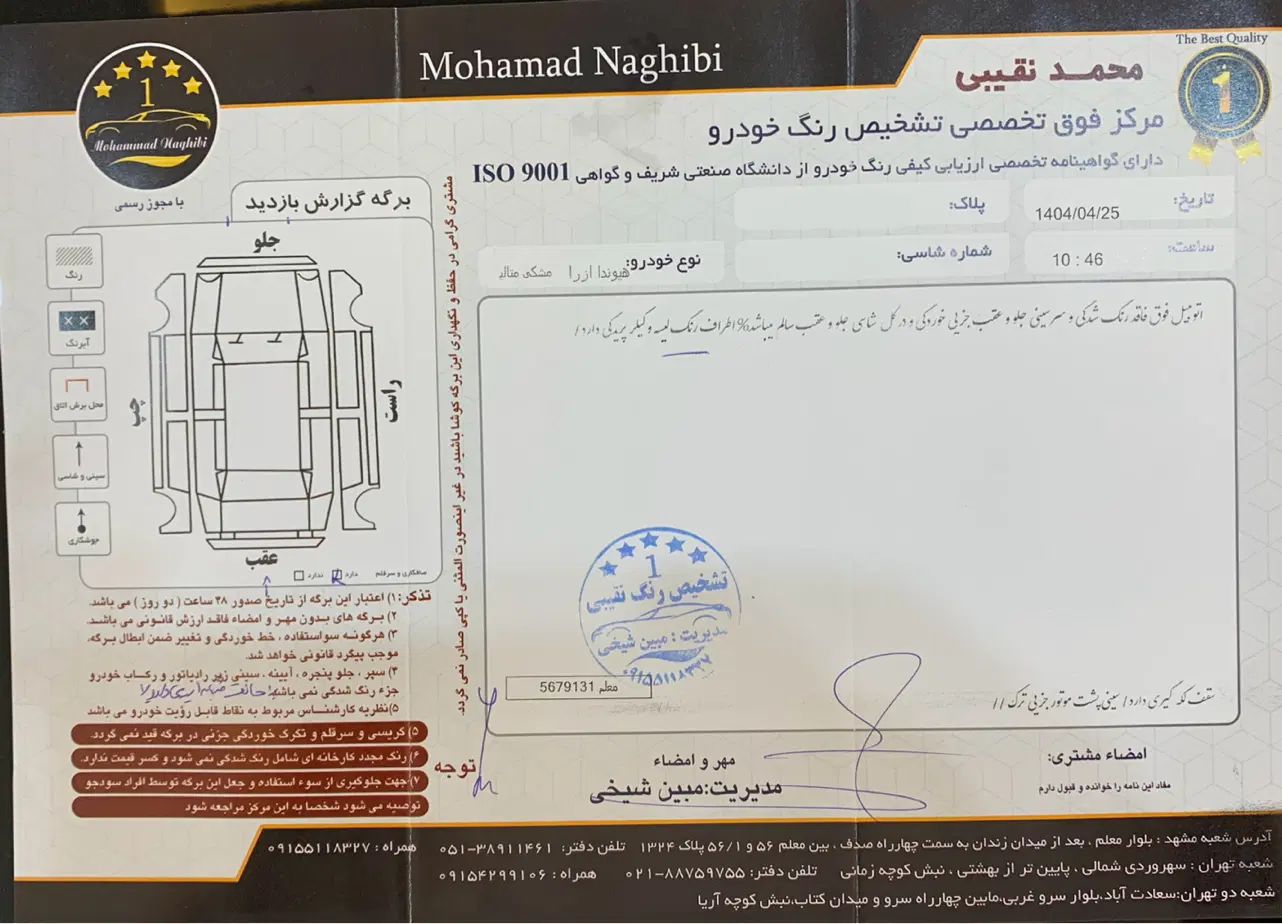 Mohamad Naghibi
The Best Quality
1
محمد نقیبی
مرکز فوق تخصصی تشخیص رنگ خودرو
دارای گواهینامه تخصصی ارزیابی کیفی رنگ خودرو از دانشگاه صنعتی شریف و گواهی ISO 9001
1
Mohammad Naghibi
با مجوز رسمی
تاریخ: 1404/04/25
پلاک:
ساعت: 10 : 46
شماره شاسی:
نوع خودرو: هیوندا ازرا مشکی متالیک
اتومبیل فوق فاقد رنگ شدگی و سرسینی جلو و عقب جزیی خوردگی و در کل شاسی جلو و عقب سالم میباشد% اطراف رنگ لیسه و کیلر پریدگی دارد/
سقف لکه گیری دارد/ سینی پشت موتور جزیی ترک //
برگه گزارش بازدید
جلو
راست
چپ
عقب
رنگ
آبرنگ
محل برش اتاق
سینی و شاسی
جوشکاری
صافکاری و سرقلم دارد ندارد
مشتری گرامی در حفظ و نگهداری این برگه کوشا باشید در غیر اینصورت المثنی یا کپی صادر نمی گردد.
تذکر: ۱) اعتبار این برگه از تاریخ صدور ۴۸ ساعت ( دو روز ) می باشد.
۲) برگه های بدون مهر و امضاء فاقد ارزش قانونی می باشد.
۳) هرگونه سواستفاده ، خط خوردگی و تغییر ضمن ابطال برگه،
موجب پیگرد قانونی خواهد شد.
۴) سپر ، جلو پنجره ، آیینه ، سینی زیر رادیاتور و رکاب خودرو
جزء رنگ شدگی نمی باشد.
۵) نظریه کارشناس مربوط به نقاط قابل رؤیت خودرو می باشد
۵) گریسی و سرقلم و تگرگ خوردگی جزئی در برگه قید نمی گردد.
۶) رنگ مجدد کارخانه ای شامل رنگ شدگی نمی شود و کسر قیمت ندارد.
۷) جهت جلوگیری از سوء استفاده و جعل این برگه توسط افراد سودجو
توصیه می شود شخصا به این مرکز مراجعه شود
توجه
1
تشخیص رنگ نقیبی
مدیریت : مبین شیخی
۰۹۱۵۵۱۱۸۳۲۷
معلم 5679131
مهر و امضاء
مدیریت:مبین شیخی
امضاء مشتری:
مفاد این نامه را خوانده و قبول دارم
آدرس شعبه مشهد : بلوار معلم ، بعد از میدان زندان به سمت چهارراه صدف ، بین معلم ۵۶ و ۵۶/۱ پلاک ۱۳۲۴ تلفن دفتر: ۳۸۹۱۱۴۶۱-۰۵۱ همراه : ۰۹۱۵۵۱۱۸۳۲۷
شعبه تهران : سهروردی شمالی ، پایین تر از بهشتی ، نبش کوچه زمانی تلفن دفتر: ۸۸۷۵۹۷۵۵-۰۲۱ همراه : ۰۹۱۵۴۲۹۹۱۰۶
شعبه دو تهران:سعادت آباد،بلوار سرو غربی،مابین چهارراه سرو و میدان کتاب،نبش کوچه آریا